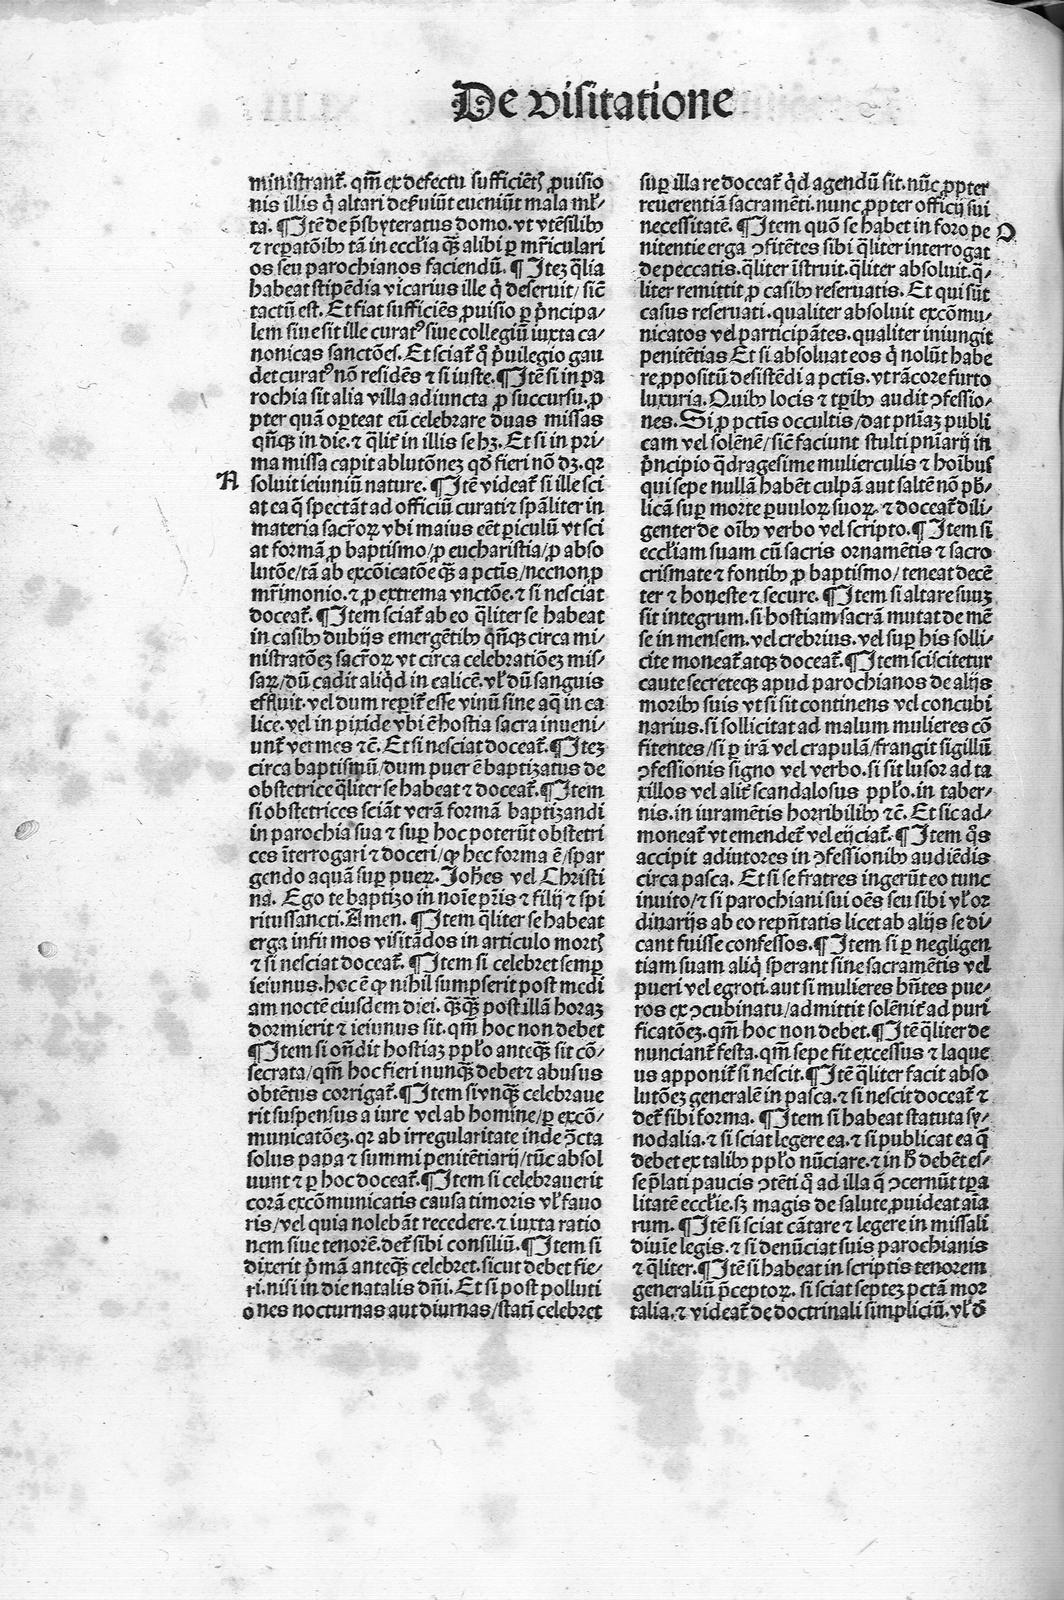 De visitatione
ministrant̃. qm̃ ex defectu sufficiẽt̃ ꝓuisio
nis illis q̃ altari deẜuiũt eueniũt mala ml̃-
ta. ¶ Itẽ de p̃sbyteratus domo. vt vtẽsilibꝰ
⁊ reꝑatõibꝰ tã in eccl̃ia qꝫ̃ alibi ꝑ mr̃iculari
os seu parochianos faciendũ. ¶ Iteꝫ q̃lia
habeat stipẽdia vicarius ille q̃ deseruit/ sic̃
tactũ est. Et fiat sufficiẽs ꝓuisio ꝑ p̃ncipa-
lem siue sit ille curatꝰ siue collegiũ iuxta ca-
nonicas sanctões. Et sciat̃ qͦ p̃uilegio gau
det curatꝰ nõ residẽs ⁊ si iuste. ¶ Itẽ si in pa
rochia sit alia villa adiuncta ꝓ succursu. ꝓ
pter quã oꝑteat eũ celebrare duas missas
qñqꝫ in die. ⁊ q̃lit̃ in illis se hꝫ. Et si in pri-
ma missa capit ablutõneꝫ qð fieri nõ dꝫ. qꝛ
A
soluit ieiuniũ nature. ¶ Itẽ videat̃ si ille sci
at ea q̃ spectãt ad officiũ curati ⁊ sp̃aliter in
materia sacr̃oꝝ vbi maius eẽt ꝑiculũ vt sci
at formã ꝓ baptismo/ ꝓ eucharistia/ ꝓ abso
lutõe/ tã ab excõicatõe qꝫ̃ a pctĩs/ necnon ꝓ
mr̃imonio. ⁊ ꝓ extrema vnctõe. ⁊ si nesciat
doceat̃. ¶ Item sciat̃ ab eo q̃liter se habeat
in casibꝰ dubijs emergẽtibꝰ qñqꝫ circa mi-
nistratõeꝫ sacr̃oꝝ vt circa celebratiõeꝫ mis-
saꝝ/ dũ cadit aliq̃d in calicẽ. vl̃ dũ sanguis
effluit. vel dum reꝑit̃ esse vinũ sine aq̃ in ca
lice. vel in pixide vbi ẽ hostia sacra inueni-
unt̃ vermes ⁊c̃. Et si nesciat doceat̃. ¶ Iteꝫ
circa baptismũ/ dum puer ẽ baptizatus de
obstetrice q̃liter se habeat ⁊ doceat̃. ¶ Item
si obstetrices sciãt verã formã baptizandi
in parochia sua ⁊ suꝑ hoc poterũt obstetri
ces ĩterrogari ⁊ doceri/ ꝙ hec forma ẽ/ spar
gendo aquã suꝑ pueꝝ. Joh̃es vel Christi
na. Ego te baptizo in noĩe pr̃is ⁊ filij ⁊ spi
ritussancti. Amen. ¶ Item q̃liter se habeat
erga infirmos visitãdos in articulo mort̃
⁊ si nesciat doceat̃. ¶ Item si celebret semꝑ
ieiunus. hoc ẽ ꝙ nihil sumpserit post medi
am noctẽ eiusdem diei. qꝫ̃qꝫ̃ post illã horaꝫ
dormierit ⁊ ieiunus sit. qm̃ hoc non debet
¶ Item si oñdit hostiaꝫ ppl̃o anteqꝫ̃ sit cõ-
secrata/ qm̃ hoc fieri nunqꝫ̃ debet ⁊ abusus
obtẽtus corrigat̃. ¶ Item si vnqꝫ̃ celebraue
rit suspensus a iure vel ab homine/ ꝑ excõ-
municatõeꝫ. qꝛ ab irregularitate inde ꝯ̃cta
solus papa ⁊ summi penitẽtiarij/ tũc absol
uunt ⁊ ꝑ hoc doceat̃. ¶ Item si celebrauerit
corã excõmunicatis causa timoris vl̃ fauo
ris/ vel quia nolebãt recedere. ⁊ iuxta ratio
nem siue tenorẽ. det̃ sibi consiliũ. ¶ Item si
dixerit p̃mã anteqꝫ̃ celebret. sicut debet fie-
ri. nisi in die natalis dñi. Et si post polluti
ones nocturnas aut diurnas/ stati celebret
suꝑ illa re doceat̃ q̃d agendũ sit. nũc ꝓpter
reuerentiã sacramẽti. nunc ꝓpter officij sui
necessitatẽ. ¶ Item quõ se habet in foro pe
nitentie erga ꝯfitẽtes sibi q̃liter interrogat
de peccatis. q̃liter ĩstruit. q̃liter absoluit. q̃-
liter remittit ꝓ casibꝰ reseruatis. Et qui sũt
casus reseruati. qualiter absoluit excõmu-
nicatos vel participãtes. qualiter iniungit
penitẽtias Et si absoluat eos q̃ nolũt habe
re ꝓpositũ desistẽdi a pctĩs. vt rãcore furto
luxuria. Quibꝰ locis ⁊ tꝑibꝰ audit ꝯfessio-
nes. Si ꝓ pctĩs occultis/ dat pñiaꝫ publi
cam vel solẽnẽ/ sic̃ faciunt stulti pñiarij in
p̃ncipio q̃dragesime mulierculis ⁊ hoĩbus
qui sepe nullã habẽt culpã aut saltẽ nõ pb̃-
licã suꝑ morte ꝑuuloꝝ suoꝝ. ⁊ doceat̃ dili-
genter de oĩbꝰ verbo vel scripto. ¶ Item si
eccl̃iam suam cũ sacris ornamẽtis ⁊ sacro
crismate ⁊ fontibꝰ ꝓ baptismo/ teneat decẽ
ter ⁊ honeste ⁊ secure. ¶ Item si altare suuꝫ
sit integrum. si hostiam sacrã mutat de mẽ
se in mensem. vel crebrius. vel suꝑ his solli-
cite moneat̃ atqꝫ doceat̃. ¶ Item sciscitetur
caute secreteqꝫ apud parochianos de alijs
moribꝰ suis vt si sit continens vel concubi
narius. si sollicitat ad malum mulieres cõ
fitentes/ si ꝑ irã vel crapulã/ frangit sigillũ
ꝯfessionis signo vel verbo. si sit lusor ad ta
xillos vel alit̃ scandalosus ppl̃o. in taber-
nis. in iuramẽtis horribilibꝰ ⁊c̃. Et sic ad-
moneat̃ vt emendet̃ vel eijciat̃. ¶ Item q̃s
accipit adiutores in ꝯfessionibꝰ audiẽdis
circa pasca. Et si se fratres ingerũt eo tunc
inuito/ ⁊ si parochiani sui oẽs seu sibi vl̃ or
dinarijs ab eo rep̃ñtatis licet ab alijs se di-
cant fuisse confessos. ¶ Item si ꝑ negligen
tiam suam aliq̃ sperant sine sacramẽtis vel
pueri vel egroti. aut si mulieres hñtes pue-
ros ex ꝯcubinatu/ admittit solẽnit̃ ad puri
ficatõeꝫ. qm̃ hoc non debet. ¶ Itẽ q̃liter de
nunciant̃ festa. qm̃ sepe fit excessus ⁊ laque
us apponit̃ si nescit. ¶ Itẽ q̃liter facit abso
lutõeꝫ generalẽ in pasca. ⁊ si nescit doceat̃ ⁊
det̃ sibi forma. ¶ Item si habeat statuta sy-
nodalia. ⁊ si sciat legere ea. ⁊ si publicat ea q̃
debet ex talibꝰ ppl̃o nũciare. ⁊ in h̃ debẽt es-
se p̃lati paucis ꝯtẽti q̃ ad illa q̃ ꝯcernũt tꝑa
litatẽ eccl̃ie. sꝫ magis de salute ꝓuideat aĩa
rum. ¶ Itẽ si sciat cãtare ⁊ legere in missali
diuĩe legis. ⁊ si denũciat suis parochianis
⁊ q̃liter. ¶ Itẽ si habeat in scriptis tenorem
generaliũ p̃ceptoꝝ. si sciat septeꝫ pctã mor
talia. ⁊ videat̃ de doctrinali simpliciũ. vl̃ ð
O